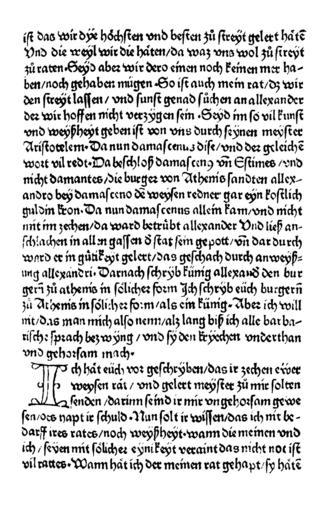 ist das wir dye höchsten vnd besten zů streyt gelert hăte
Vnd die weyl wir die hăten/da waz vns wol zů streyt
zů raten. Seyd aber wir dero einen noch keinen mer ha-
ben/noch gehaben mügen. So ist auch mein rat/dz wir
den streyt lassen/ vnd sunst genad sůchen an allexander
der wir hoffen nicht verzygen sein. Seyd im so vil kunst
vnd weyßheyt geben ist von vns durch seynen meyster
Aristotelem. Da nun damascenus dise/vnd der geleichē
wort vil redt. Da beschloß damasceno vn̄ Estimes /vnd
nicht damantes/die burger von Athenis sandten allex-
andro bey damasceno de weysen redner gar eyn kostlich
guldin kron. Da nun damascenus allein kam/vnd nicht
mit im zechen/da ward betrübt allexander Vnd ließ an-
schlachen in allen gassen d stat sein gepott/vn̄ dar durch
ward er in gůtikeyt gelert/das geschach durch anweyß-
ung allexandri. Darnach schryb künig allexand den bur
gern̄ zů athenis in sölicher form Ich schryb eüch burgern̄
zů Athenis in sölicher form/als ein künig. Aber ich will
nit/das man mich also nenn/alz lang biß ich alle barba-
rische sprach bezwyng/ vnd sy den kryechen vnderthan
vnd gehorsam mach.
Ich hăt eüch vor geschryben/das ir zechen ewer
weysen răt/ vnd gelert meyster zů mir solten
senden/darinn seind ir mir vngehorsam gewe
sen/des hapt ir schuld. Nun solt ir wissen/das ich nit be-
darff ires rates/noch weyßheyt. wann die meinen vnd
ich/ seyen mit sölicher eynikeyt veraint das nicht not ist
vil rattes. Wann hăt ich der meinen rat gehapt/sy hătē